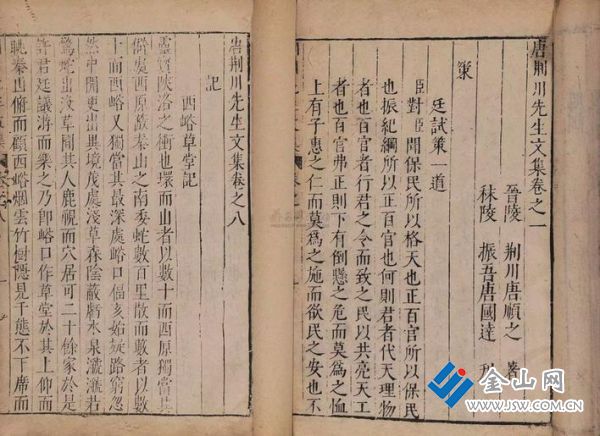 唐荆川先生文集卷之一
晉陵 荆川唐順之 著
秣陵 振吾唐國達
策
廷試策一道
臣對臣聞保民所以格天也正百官所以保民
也振紀綱所以正百官也何則君者代天理物
者也百官者行君之令而致之民以共亮天工
者也百官弗正則下有倒懸之危而莫爲之恤
上有子惠之仁而莫爲之施而欲民之安也不
唐荆川先生文集卷之八
記
西峪草堂記
靈寶陝洛之衝也環而山者以數十而西原獨當其
處西原故秦山之南委蛇數百里散而數者以數
十而西峪又獨當其最深處峪口偪始疑路窮忽
然中開更出異境茂處淺草森陰蔽水泉瀺灂若
驚蛇出没草間其人鹿視而穴居可二十餘家於是
許君廷議游而樂之乃卽峪口作草堂於其上仰而
眺秦山俯而顧西峪烟雲竹樹隱見千態不下席而
金山网
www.JSW.com.cn